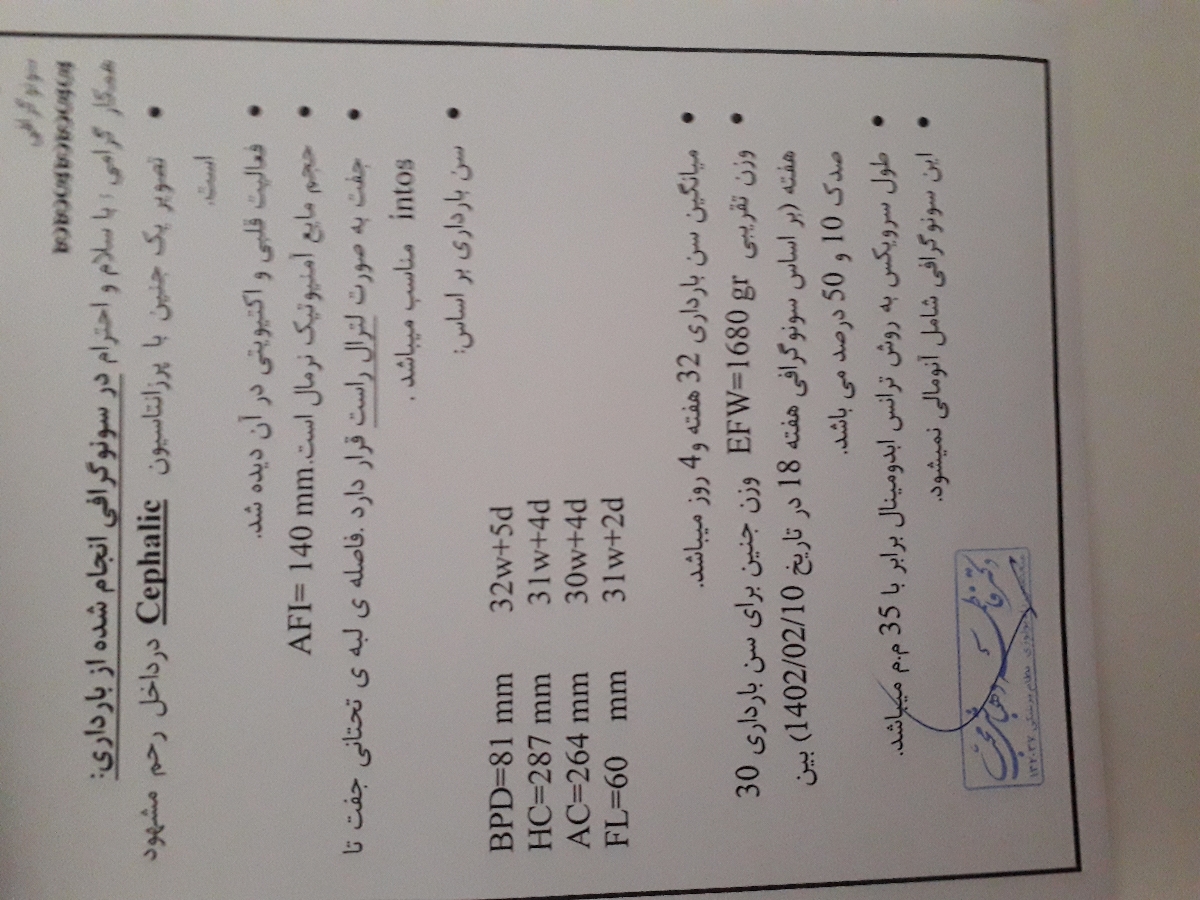 سونوگرافی
همکار گرامی ؛ با سلام و احترام در سونوگرافی انجام شده از بارداری:
• تصویر یک جنین با پرزانتاسیون Cephalic درداخل رحم مشهود
است.
• فعالیت قلبی و اکتیویتی در آن دیده شد.
• حجم مایع آمنیوتیک نرمال است.AFI= 140 mm
• جفت به صورت لترال راست قرار دارد .فاصله ی لبه ی تحتانی جفت تا
intos مناسب میباشد .
• سن بارداری بر اساس:
BPD=81 mm 32w+5d
HC=287 mm 31w+4d
AC=264 mm 30w+4d
FL=60 mm 31w+2d
• میانگین سن بارداری 32 هفته و 4 روز میباشد.
• وزن تقریبی EFW=1680 gr وزن جنین برای سن بارداری 30
هفته (بر اساس سونوگرافی هفته 18 در تاریخ 1402/02/10) بین
صدک 10 و 50 درصد می باشد.
• طول سرویکس به روش ترانس ابدومینال برابر با 35 م.م میباشد.
• این سونوگرافی شامل آنومالی نمیشود.